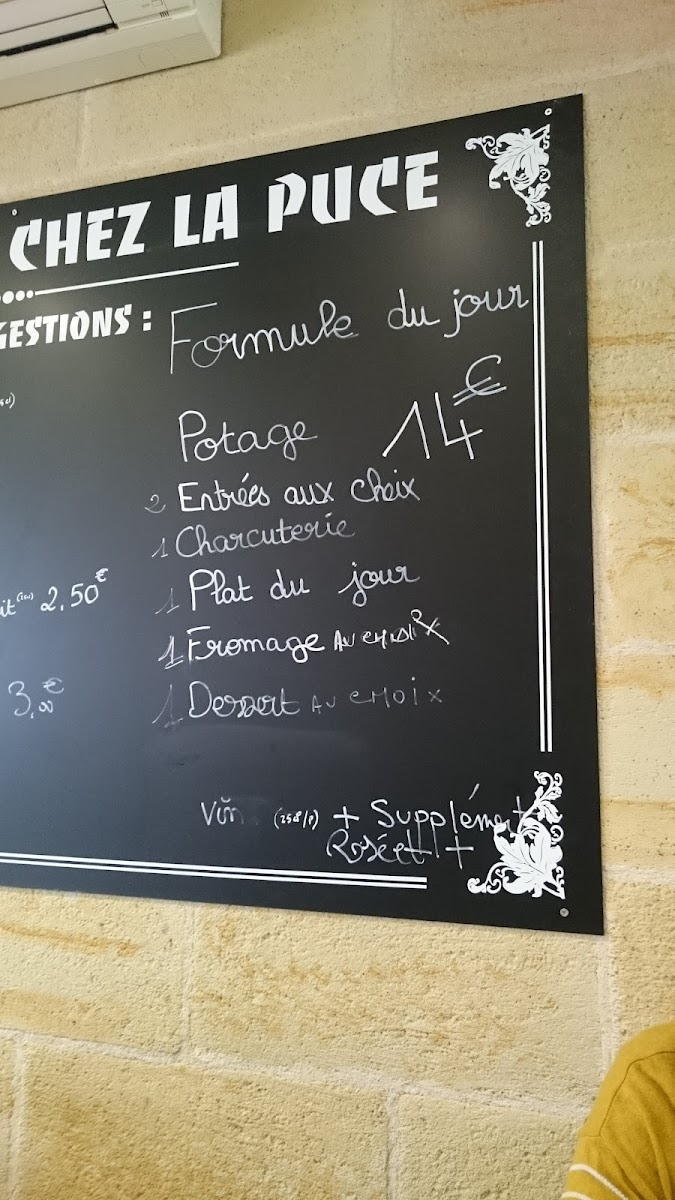 CHEZ LA PUCE
GESTIONS :
Formule du jour
14€
Potage
2 Entrées aux choix
1 Charcuterie
1 Plat du jour
1 Fromage AU CHOIX
1 Dessert AU CHOIX
it 2,50€
3,00€
Vin + Supplément
Rosée +